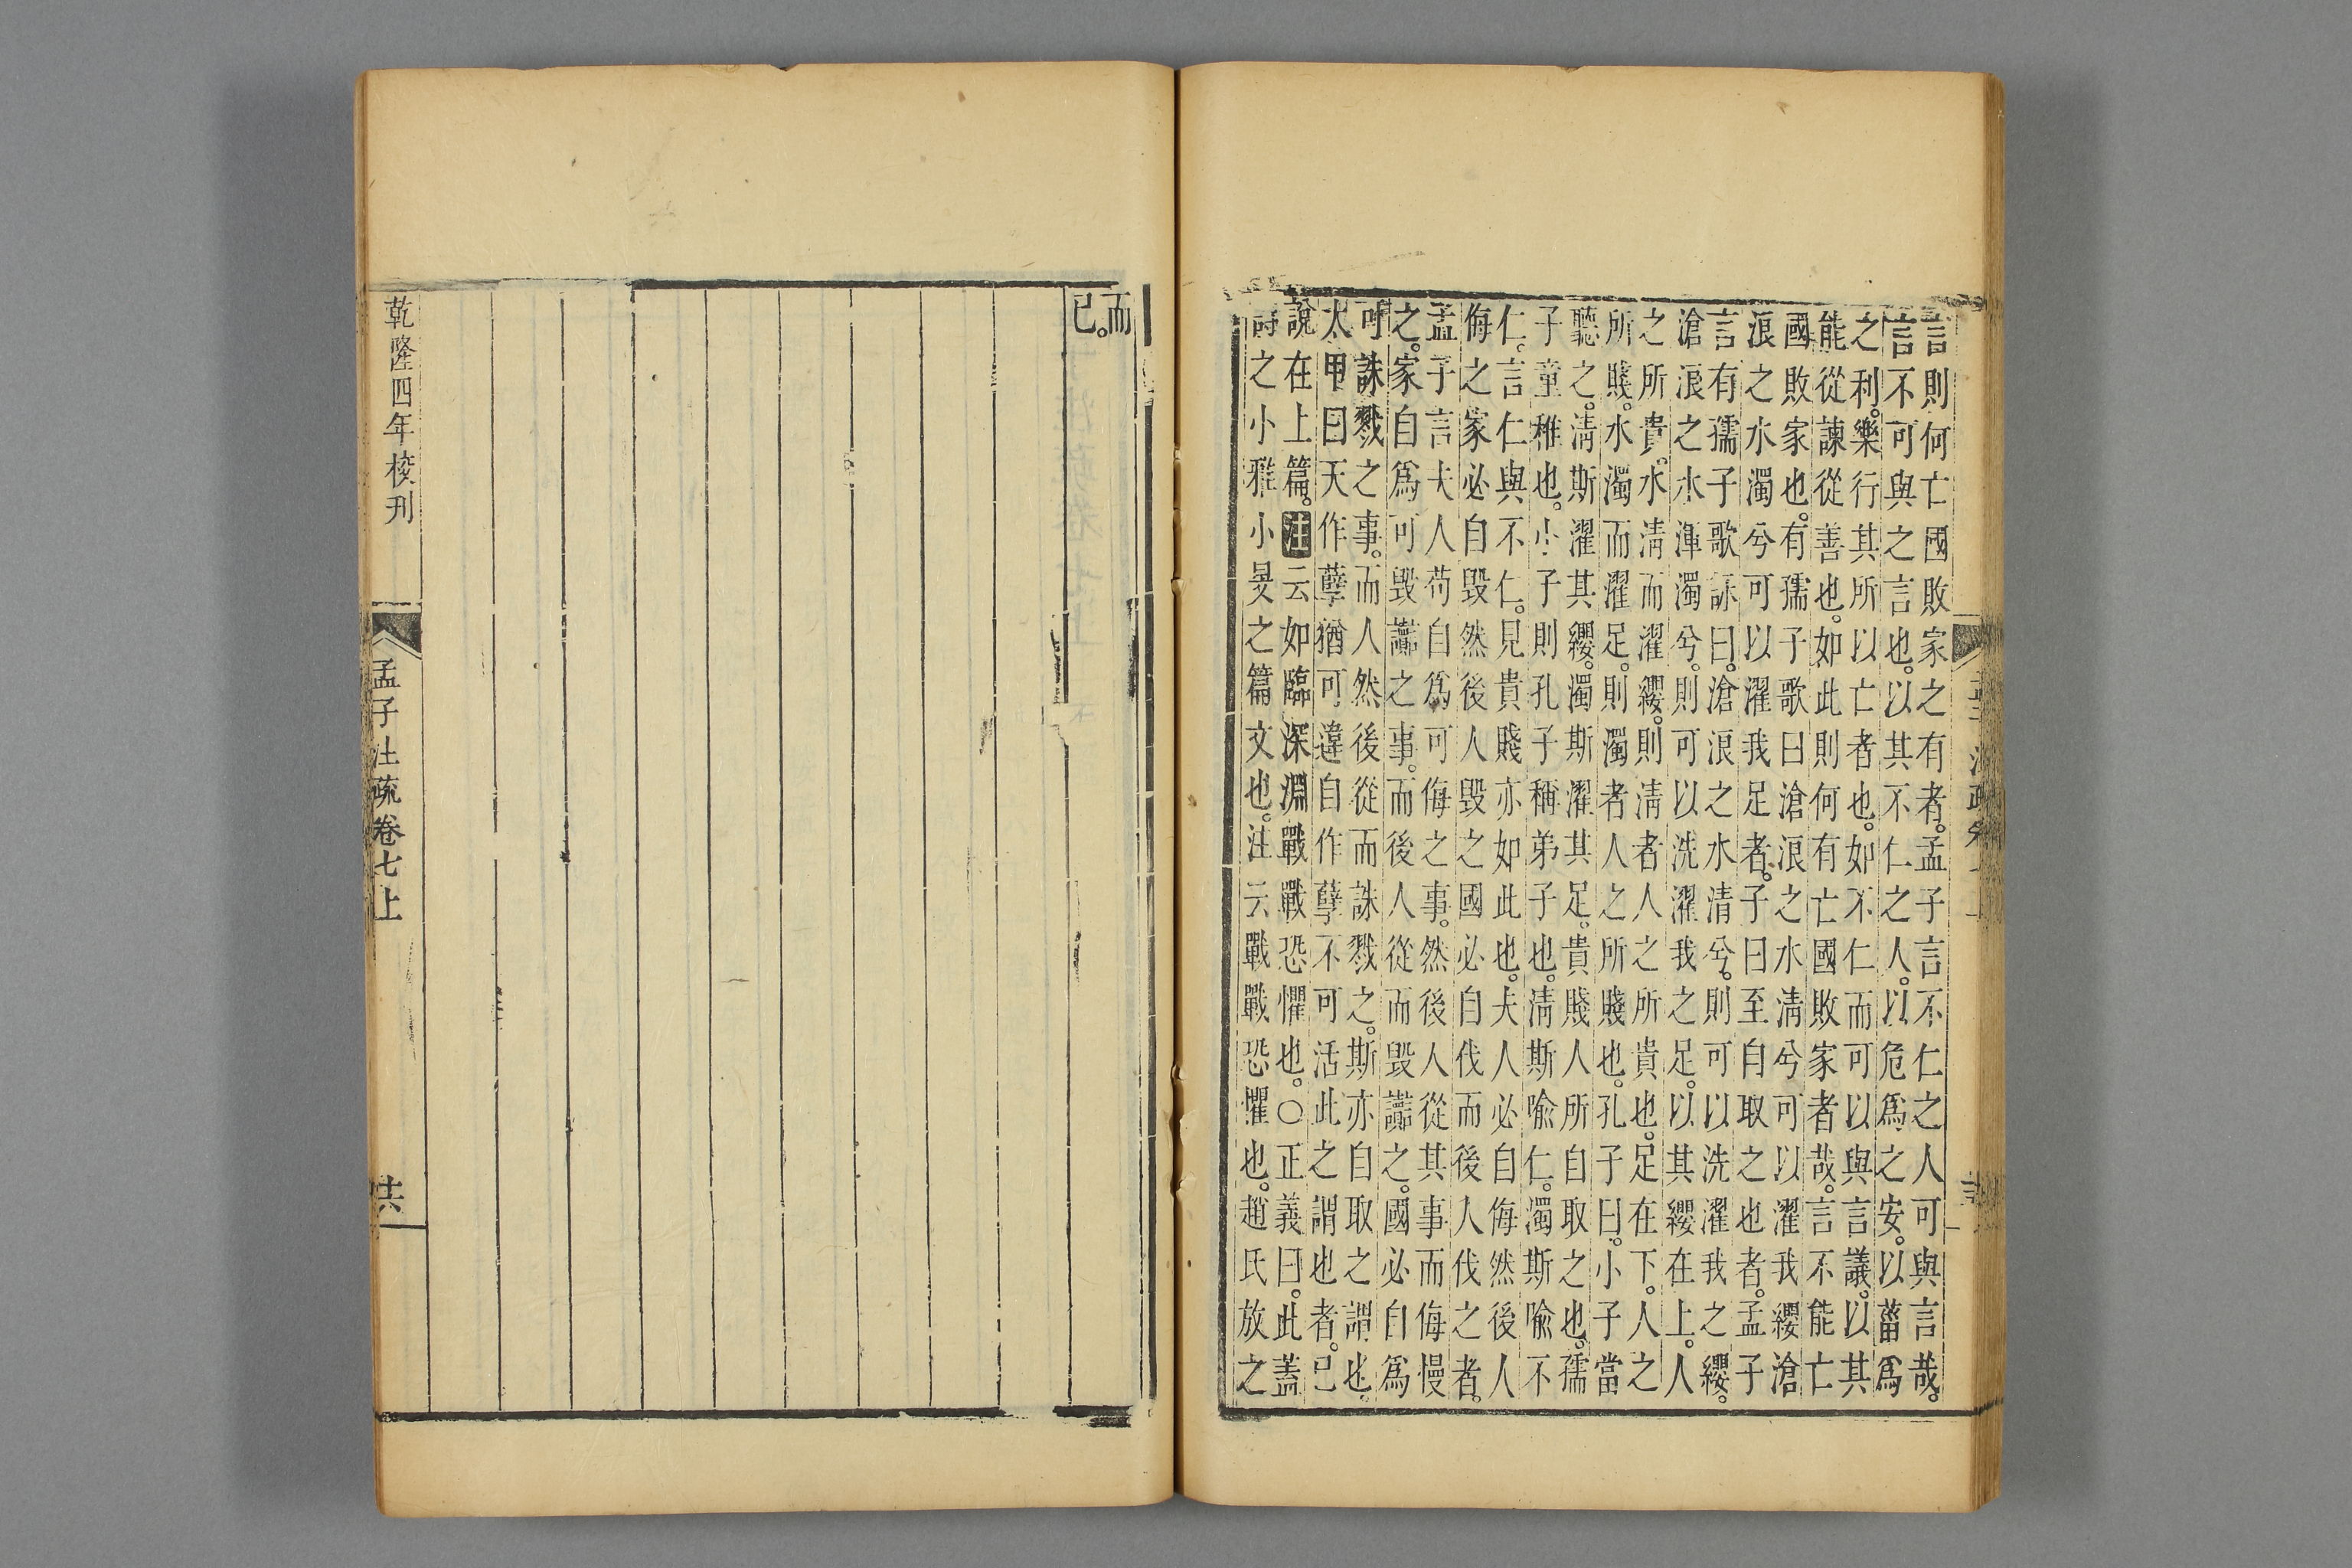 言則何亡國敗家之有者。孟子言不仁之人可與言哉。
言不可與之言也。以其不仁之人。以危爲之安。以菑爲
之利。樂行其所以亡者也。如不仁而可以與言議。以其
能從諫從善也。如此則何有亡國敗家者哉。言不能亡
國敗家也。有孺子歌曰滄浪之水淸兮可以濯我纓滄
浪之水濁兮可以濯我足者。子曰至自取之也者。孟子
言有孺子歌詠曰。滄浪之水清兮。則可以洗濯我之纓。
滄浪之水渾濁兮。則可以洗濯我之足。以其纓在上。人
之所貴。水淸而濯纓。則淸者人之所貴也。足在下。人之
所賤。水濁而濯足。則濁者人之所賤也。孔子曰。小子當
聽之。淸斯濯其纓。濁斯濯其足。貴賤人所自取之也。孺
子童稚也。小子則孔子稱弟子也。淸斯喻仁。濁斯喻不
仁。言仁與不仁。見貴賤亦如此也。夫人必自侮然後人
侮之家必自毀然後人毀之國必自伐而後人伐之者。
孟子言夫人苟自爲可侮之事。然後人從其事而侮慢
之。家自爲可毀讟之事。而後人從而毀讟之。國必自爲
可誅戮之事。而人然後從而誅戮之。斯亦自取之謂也。
太甲曰天作孽猶可違自作孽不可活此之謂也者。已
說在上篇。注云如臨深淵戰戰恐懼也。○正義曰。此蓋
詩之小雅小旻之篇文也。注云戰戰恐懼也。趙氏放之
而
已。
乾隆四年校刋
孟子注疏卷七上